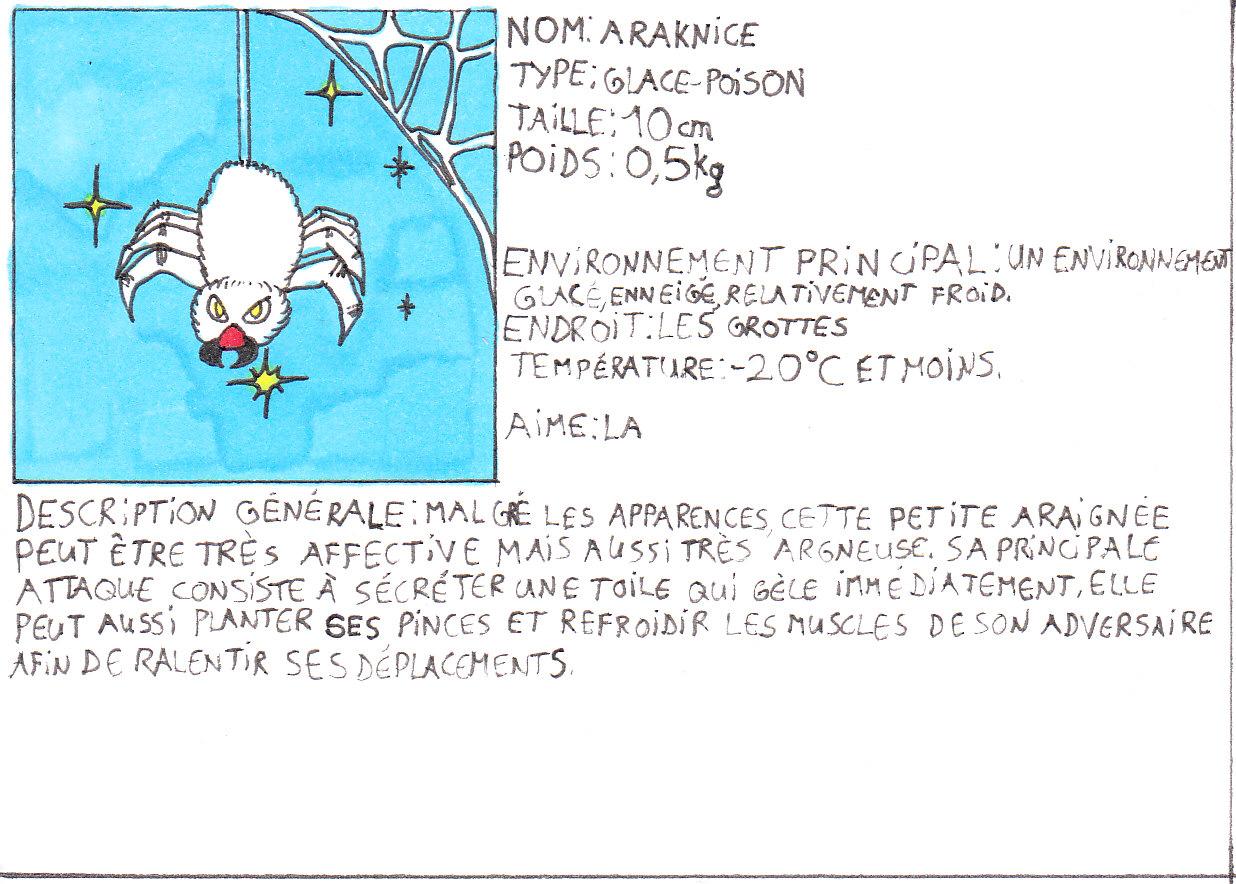 NOM: ARAKNICE
TYPE: GLACE-POISON
TAILLE: 10 cm
POIDS: 0,5 kg
ENVIRONNEMENT PRINCIPAL: UN ENVIRONNEMENT
GLACÉ, ENNEIGÉ, RELATIVEMENT FROID.
ENDROIT: LES GROTTES
TEMPÉRATURE: -20°C ET MOINS.
AIME: LA
DESCRIPTION GÉNÉRALE: MALGRÉ LES APPARENCES, CETTE PETITE ARAIGNÉE
PEUT ÊTRE TRÈS AFFECTIVE MAIS AUSSI TRÈS ARGNEUSE. SA PRINCIPALE
ATTAQUE CONSISTE À SÉCRÉTER UNE TOILE QUI GÈLE IMMÉDIATEMENT, ELLE
PEUT AUSSI PLANTER SES PINCES ET REFROIDIR LES MUSCLES DE SON ADVERSAIRE
AFIN DE RALENTIR SES DÉPLACEMENTS.